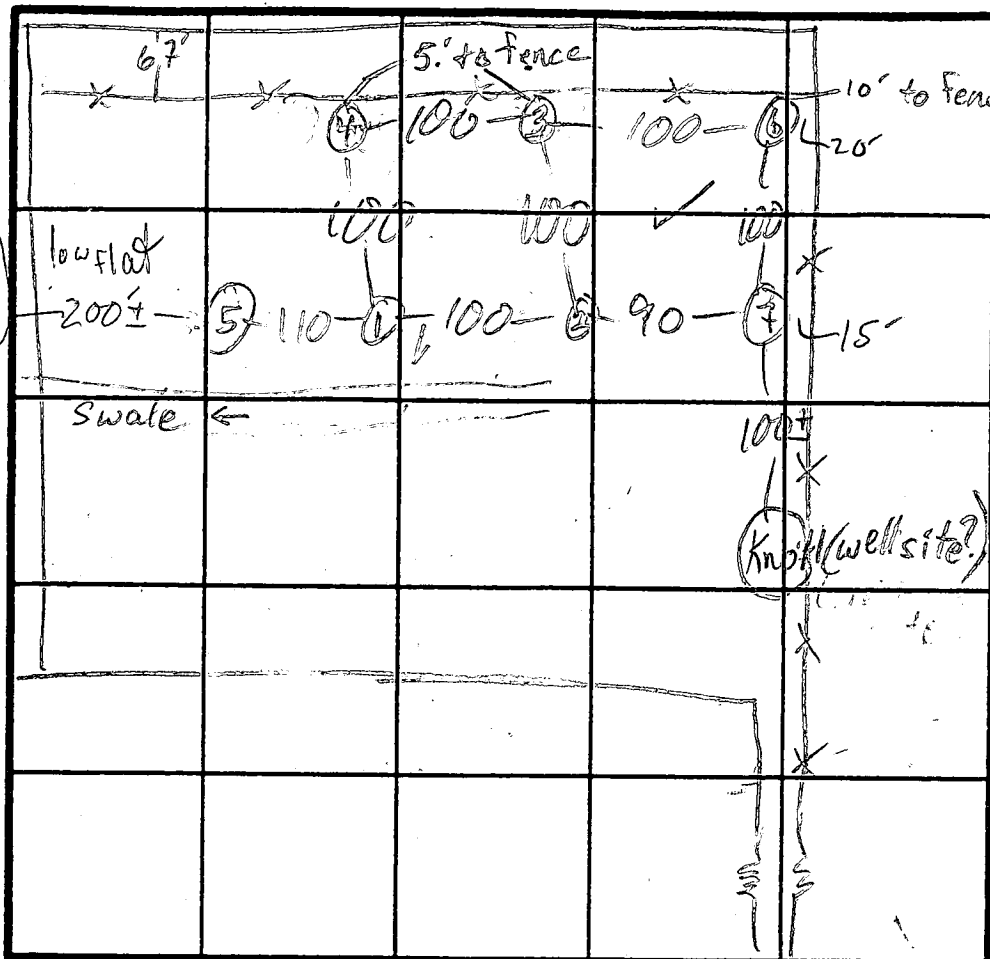 6'7'
5' to fence
10' to Fen
4 100 3 100 6
20'
100 100 100
low flat
200'± 5 110 1 100 2 90 7
15'
Swale ←
100±
Knoll (well site?)